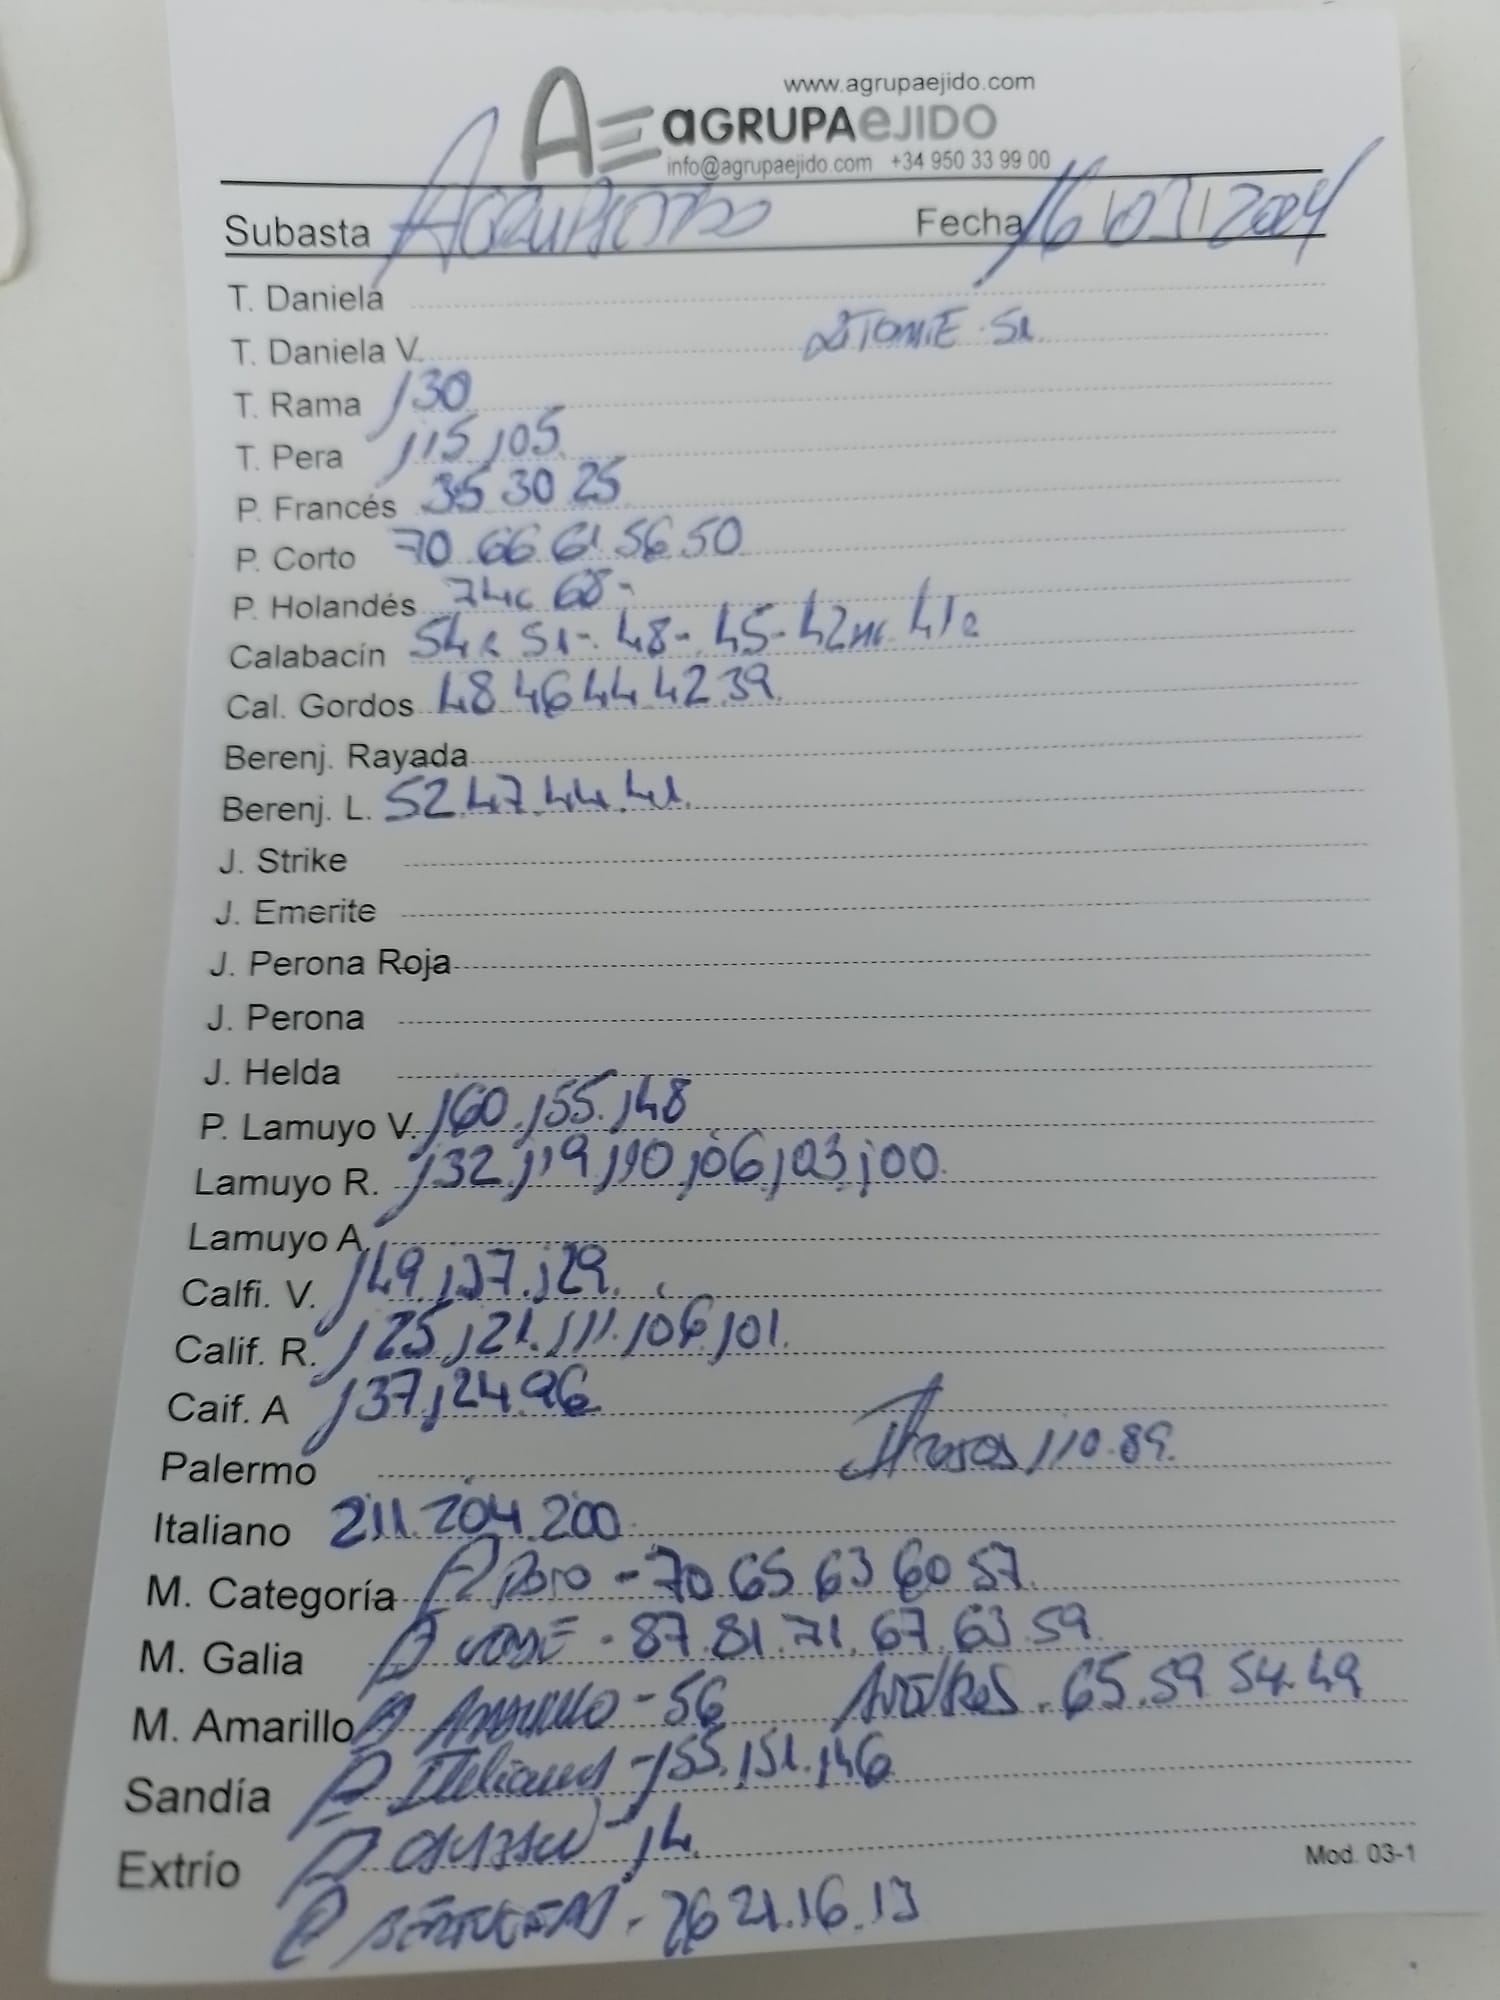 www.agrupaejido.com
AE aGRUPAeJIDO
info@agrupaejido.com +34 950 33 99 00
Subasta Fecha 16/03/2024
T. Daniela
T. Daniela V.
T. Rama 130
T. Pera 115 105
P. Francés 35 30 25
P. Corto 70 66 61 56 50
P. Holandés 74c 68-
Calabacín 54c 51-. 48-. 45- 42mc 41c
Cal. Gordos 48 46 44 42 39
Berenj. Rayada
Berenj. L. 52.47.44.41.
J. Strike
J. Emerite
J. Perona Roja
J. Perona
J. Helda
P. Lamuyo V. 160.155.148
Lamuyo R. 132.119.110.106.103.100.
Lamuyo A.
Calfi. V. 149.137.129.
Calif. R. 125.121.111.106.101.
Caif. A 137.124.96
Palermo 110.89.
Italiano 211.204.200
M. Categoría - 70 65 63 60 57
M. Galia - 87.81.71.67.63.59.
M. Amarillo Amarillo - 56 . 65.59 54.49
Sandía P Italianos - 155.151.146
Extrío 14.
Mod. 03-1
. 26 21.16.13